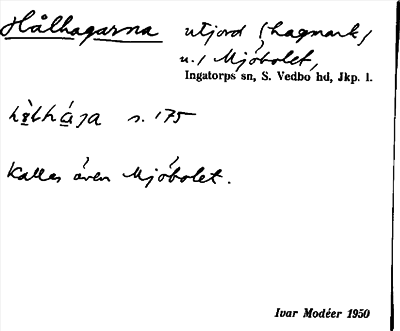 Hålhagarna utjord (hagmark)
u./ Mjöbolet,
Ingatorps sn, S. Vedbo hd, Jkp. l.
s. 175
Kallas även Mjöbolet.
Ivar Modéer 1950